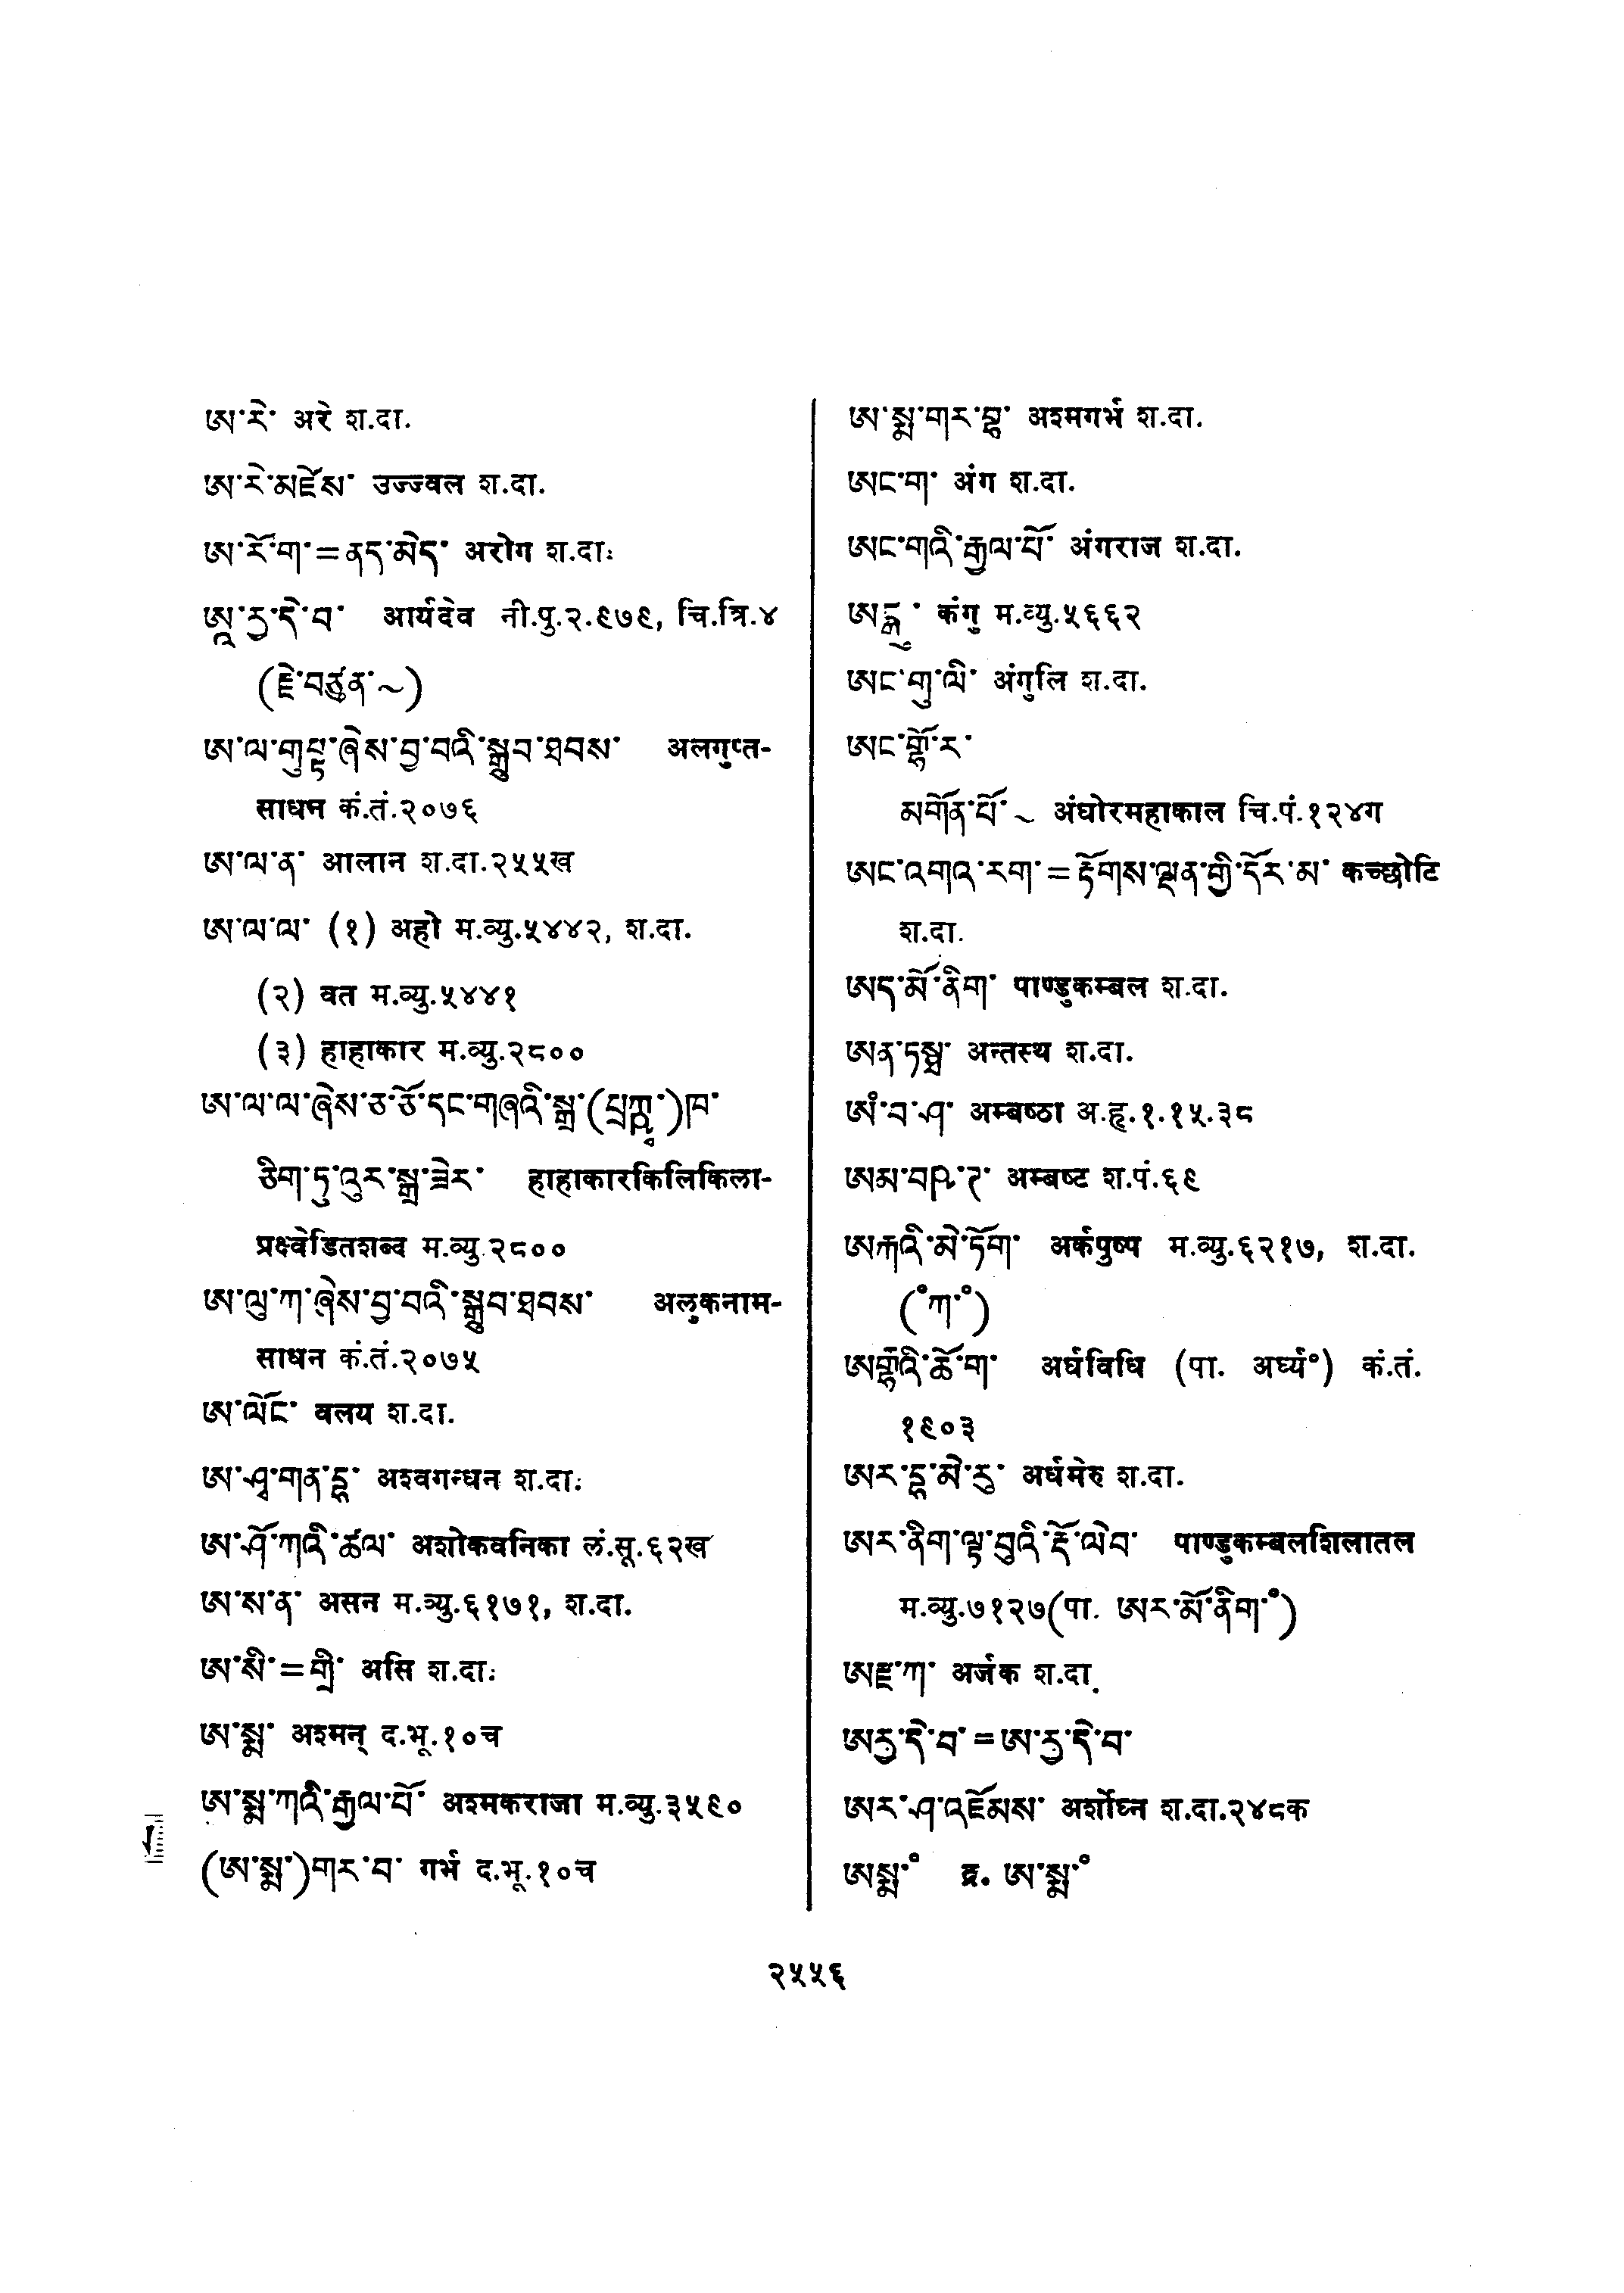 ཨ་རེ་ अरे श.दा.
ཨ་རེ་མཛེས་ उज्ज्वल श.दा.
ཨ་རོ་ག་=ནད་མེད་ अरोग श.दा.
ཨཱ་རྱ་དེ་བ་ आर्यदेव नी.पु.२.९७९, चि.त्रि.४
(རྗེ་བཙུན་~)
ཨ་ལ་གུཔྟ་ཞེས་བྱ་བའི་སྒྲུབ་ཐབས་ अलगुप्त-
साधन कं.तं.२०७६
ཨ་ལ་ན་ आलान श.दा.२५५ख
ཨ་ལ་ལ་ (१) अहो म.व्यु.५४४२, श.दा.
(२) वत म.व्यु.५४४१
(३) हाहाकार म.व्यु.२८००
ཨ་ལ་ལ་ཞེས་ཅ་ཅོ་དང་གཞའི་སྒྲ་
ཅིག་ཏུ་འུར་སྒྲ་ཟེར་ हाहाकारकिलिकिला-
प्रक्ष्वेडितशब्द म.व्यु.२८००
ཨ་ལུ་ཀ་ཞེས་བྱ་བའི་སྒྲུབ་ཐབས་ अलुकनाम-
साधन कं.तं.२०७५
ཨ་ལོང་ वलय श.दा.
ཨ་ཤྭ་གན་དྷ་ अश्वगन्धन श.दा.
ཨ་ཤོ་ཀའི་ཚལ་ अशोकवनिका लं.सू.६२ख
ཨ་ས་ན་ असन म.व्यु.६१७१, श.दा.
ཨ་སི་=གྲི་ असि श.दा.
ཨ་སྨ་ अश्मन् द.भू.१०च
ཨ་སྨ་ཀའི་རྒྱལ་པོ་ अश्मकराजा म.व्यु.३५९०
(ཨ་སྨ་)གར་བ་ गर्भ द.भू.१०च
ཨ་སྨ་གར་བྷ་ अश्मगर्भ श.दा.
ཨང་ག་ अंग श.दा.
ཨང་གའི་རྒྱལ་པོ་ अंगराज श.दा.
कंगु म.व्यु.५६६२
ཨང་གུ་ལི་ अंगुलि श.दा.
ཨང་གྷོ་ར་
མགོན་པོ་~ अंघोरमहाकाल चि.पं.१२४ग
ཨང་འགའ་རག་=རྟོགས་ལྡན་གྱི་དོར་མ་ कच्छोटि
श.दा.
ཨད་མོ་ནིག་ पाण्डुकम्बल श.दा.
ཨན་ཏསྠ་ अन्तस्थ श.दा.
ཨཾ་བ་ཤ་ अम्बष्ठा अ.हृ.१.१५.३८
अम्बष्ट श.पं.६९
ཨརྐའི་མེ་ཏོག་ अर्कपुष्प म.व्यु.६२१७, श.दा.
(॰ཀ་॰)
ཨརྒྷའི་ཆོ་ག་ अर्घविधि (पा. अर्घ्य॰) कं.तं.
१९०३
ཨར་དྷ་མེ་རུ་ अर्धमेरु श.दा.
ཨར་ནིག་ལྟ་བུའི་རྡོ་ལེབ་ पाण्डुकम्बलशिलातल
म.व्यु.७१२७(पा. ཨར་མོ་ནིག་॰)
ཨརྫ་ཀ་ अर्जक श.दा.
ཨརྱ་དེ་བ་=ཨ་རྱ་དེ་བ་
ཨར་ཤ་འཇོམས་ अर्शोघ्न श.दा.२४८क
ཨསྨ་॰ द्र. ཨ་སྨ་॰
२५५६